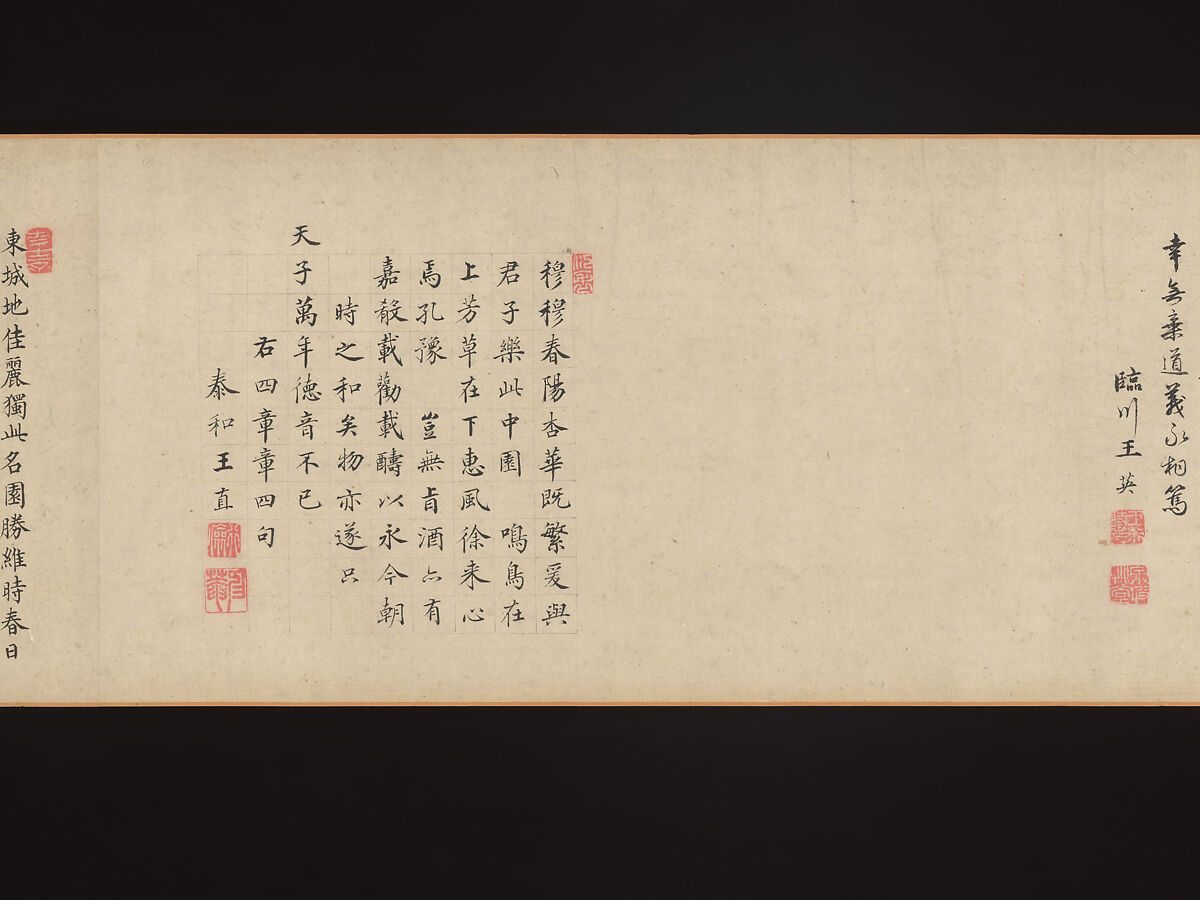 幸無棄道義永相篤
臨川王英
穆穆春陽杏華既繁爰與
君子樂此中園　鳴鳥在
上芳草在下惠風徐来心
焉孔豫　豈無旨酒亦有
嘉殽載勸載醻以永今朝
時之和矣物亦遂只
天子萬年德音不已
右四章章四句
泰和王直
東城地佳麗獨此名園勝維時春日